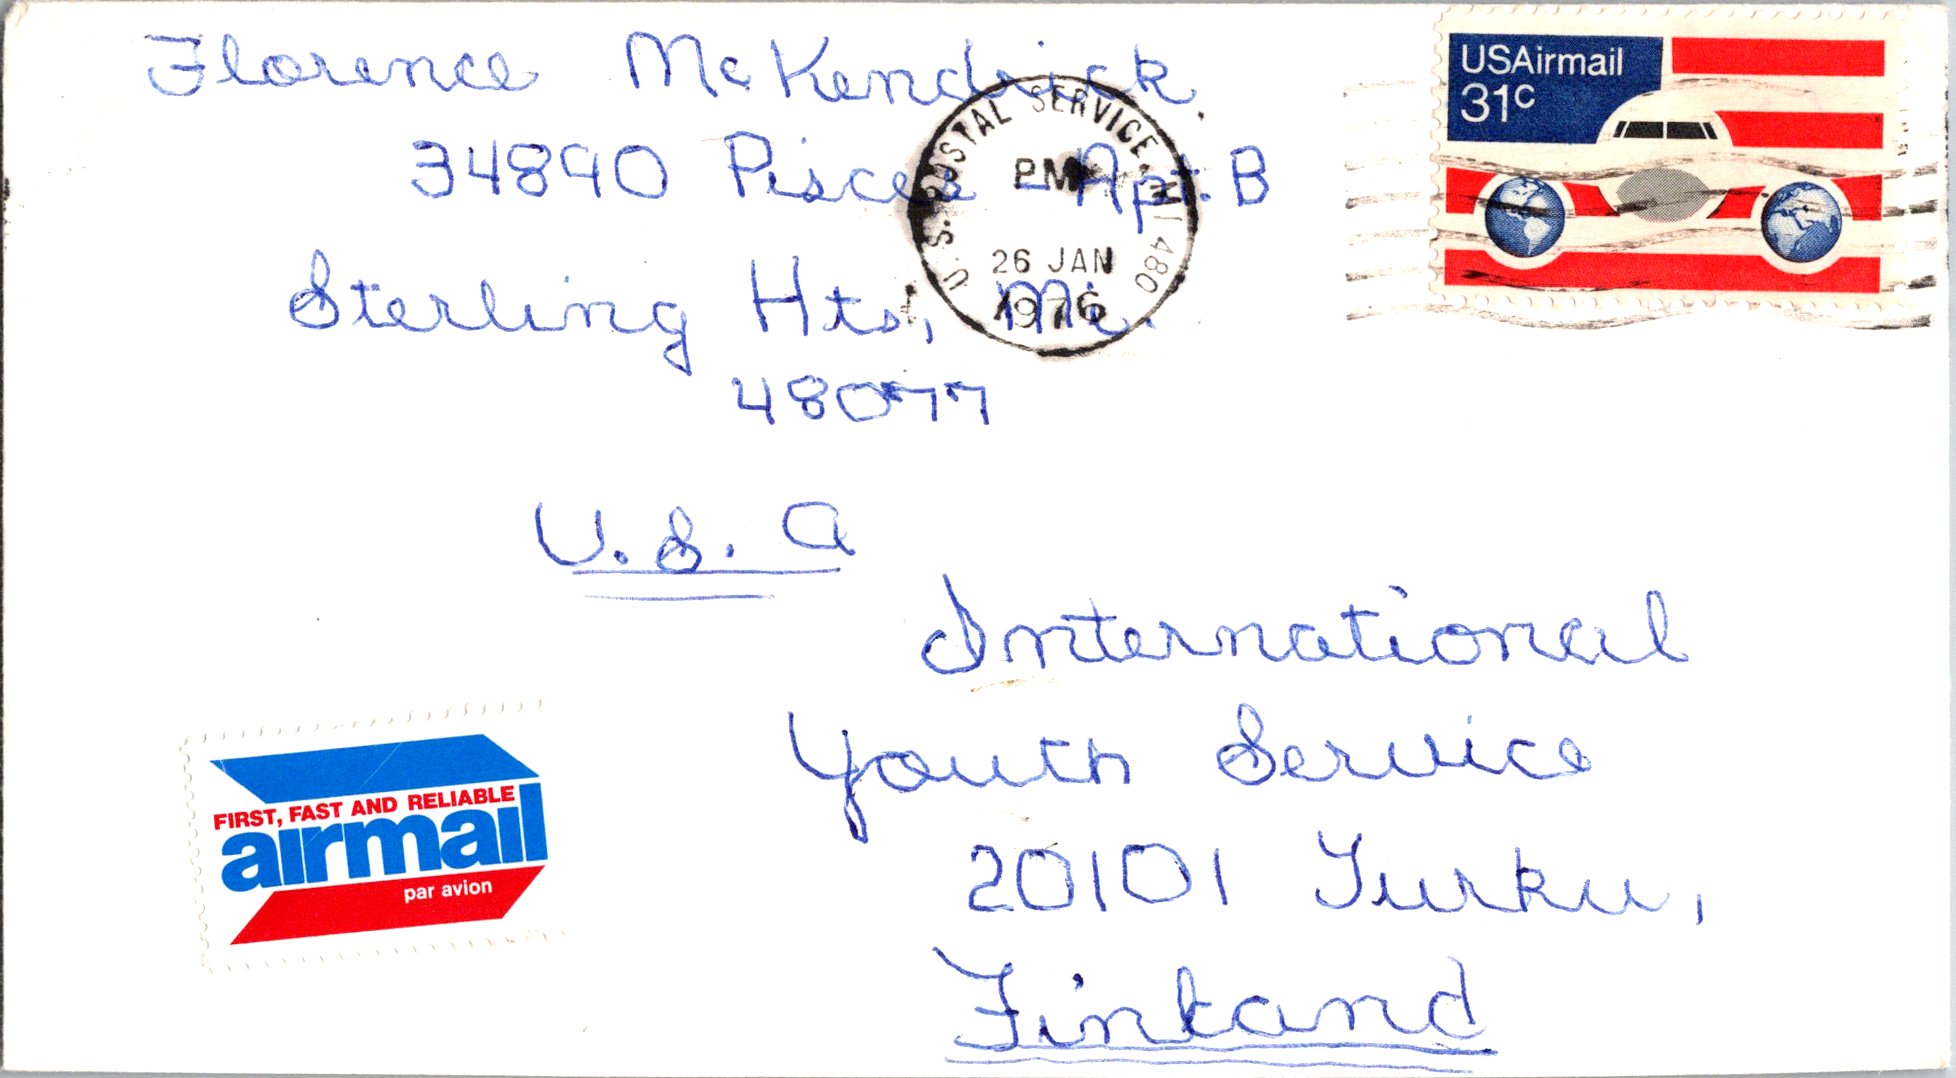 Florence McKendrick
34890 Pisces - Apt. B
Sterling Hts, Mi.
48077
U.S. A
U.S. POSTAL SERVICE MI 480
PM
26 JAN
1976
USAirmail
31c
FIRST, FAST AND RELIABLE
airmail
par avion
International
Youth Service
20101 Turku,
Finland